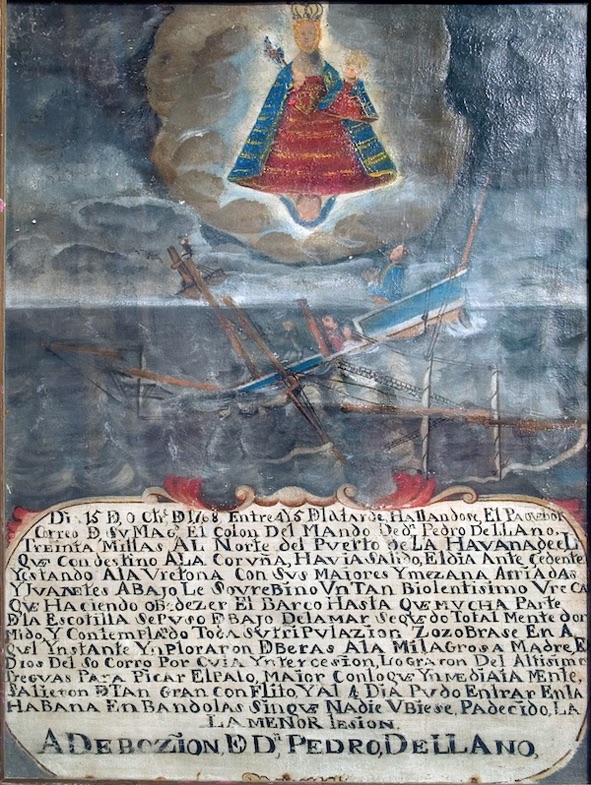 Dia 15 D, 8 Che. D1768 Entre 4 y 5 Dlatarde, Hallandose, El Paquebot
Correo D, Su Mag. El Colon Del Mando Dedn. Pedro DeLLAno,
Treinta Millas AL Norte del Puerto deLA HavanadeeL
Que Con destino ALA Coruña, Havia Salido, Eldia Ante Cedente,
Yestando ALA Vretona Con Sus Maiores Ymezana Arriadas
YJuanetes Abajo Le Sovrebino Un Tan Biolentisimo Vreca
Que Haciendo obedezer El Barco Hasta Que Mucha Parte
D'la Escotilla Sepuso Debajo Delamar Sequedo Total Mente dor
Mido, Y Contemplado Toda Sutripulazion Zozobrase En A
quel Ynstante Ynploraron DEberas ALA MilaGrosa Madre, D
Dios Del So Corro Por Cuia Yntercesion, LoGraron Del Altisimo
treguas Para Picar Elpalo, Maior Conloque Ynmediata Mente,
Salieron D Tan Gran conflito, Yal 4 Dia Pudo Entrar Enla
Habana En Bandolas Sinque Nadie Ubiese, Padecido, La
LA menor lesion.
A Debozion, D Dn. Pedro, DeLLano,